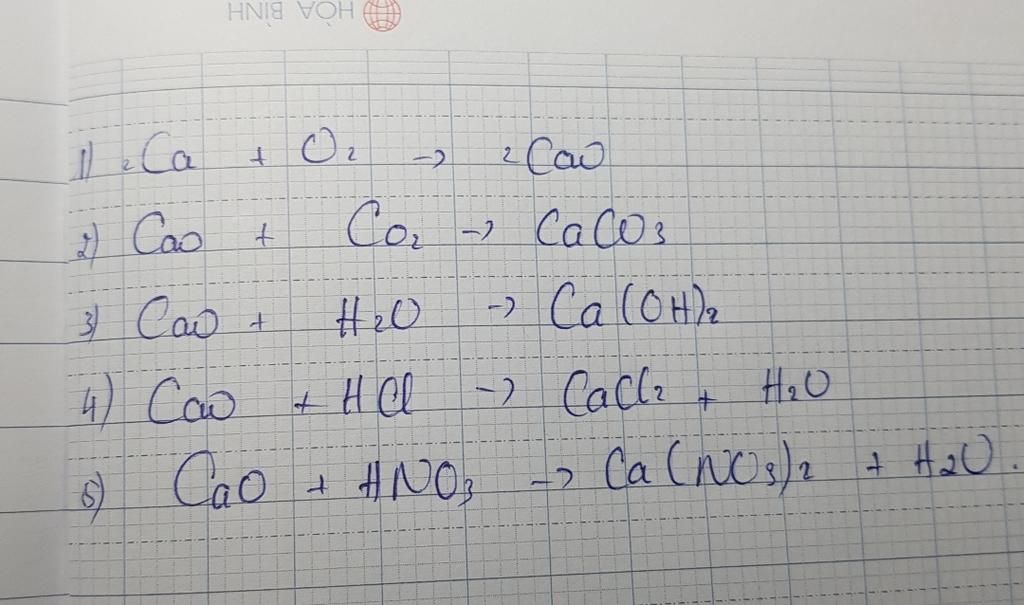 HÒA BÌNH
1) 2Ca + O2 → 2CaO
2) CaO + CO2 → CaCO3
3) CaO + H2O → Ca(OH)2
4) CaO + HCl → CaCl2 + H2O
5) CaO + HNO3 → Ca(NO3)2 + H2O.